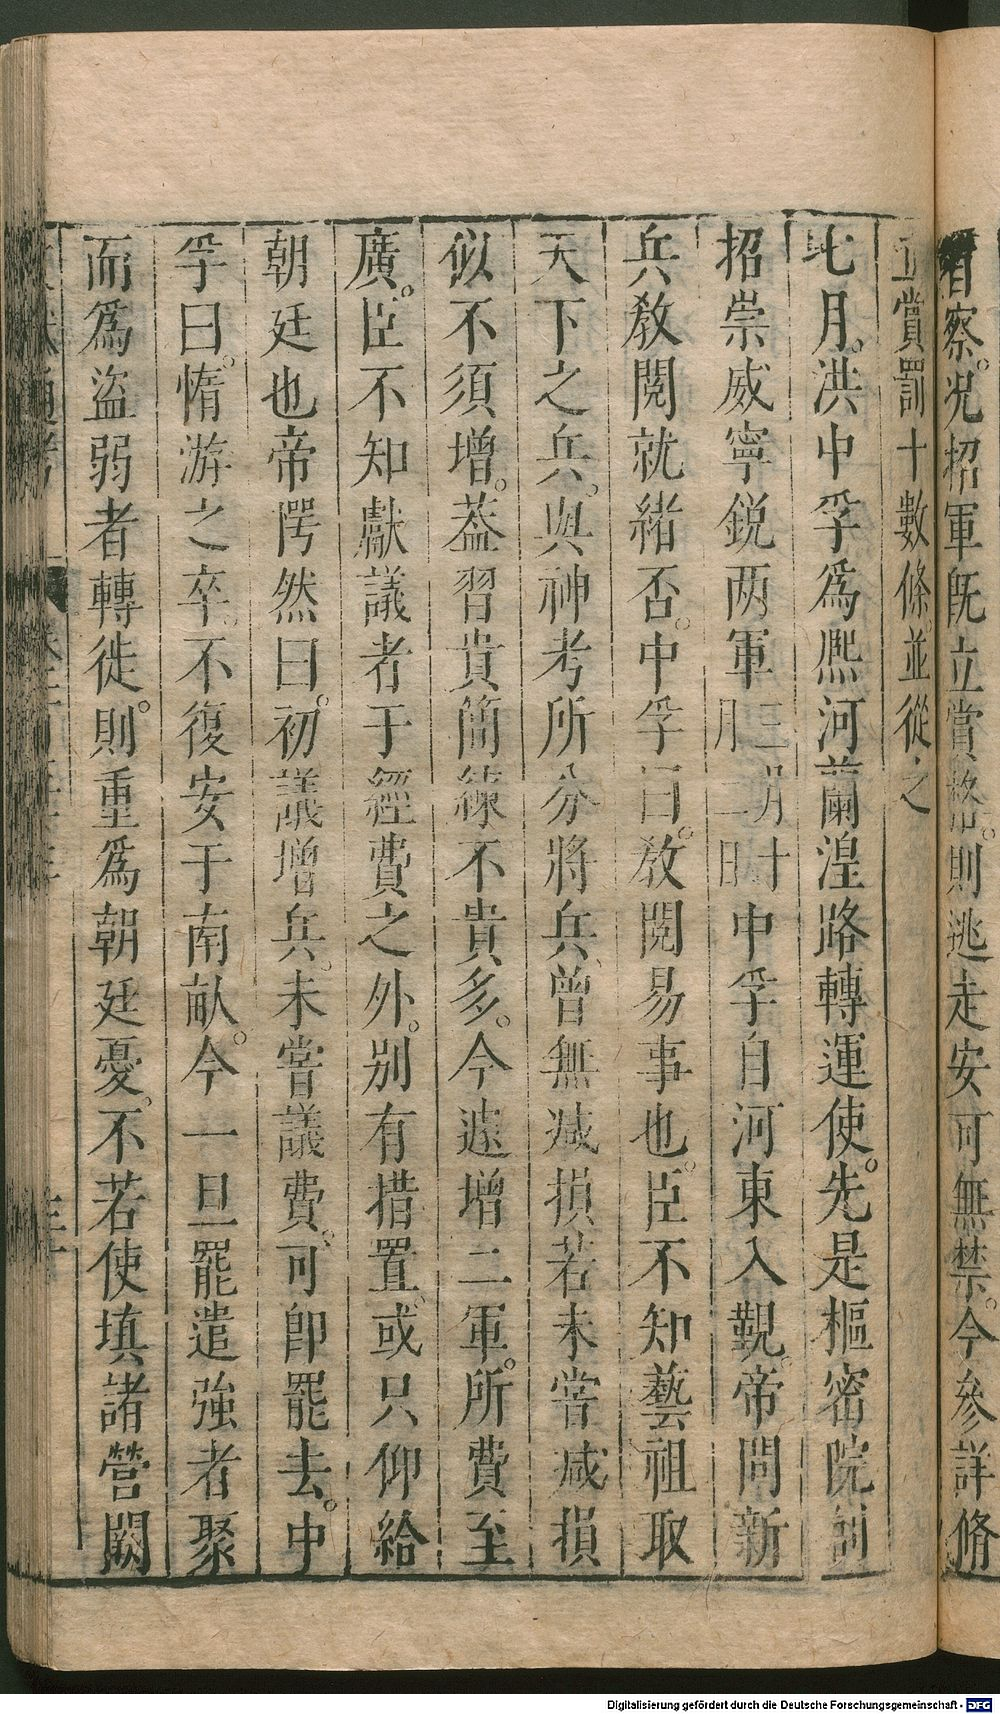 省察。况招軍旣立賞格。則逃走安可無禁。今參詳脩
立賞罰十數條。並從之
七月。洪中孚爲熈河蘭湟路轉運使。先是樞密院創
招崇威寧銳两軍三月十一月二日中孚自河東入覲。帝問新
兵敎閱就緒否。中孚曰。敎閱易事也。臣不知藝祖取
天下之兵。與神考所分將兵。曾無减損若未嘗减損
似不須增。葢習貴簡練不貴多。今遽增二軍。所費至
廣。臣不知獻議者于經費之外。别有措置。或只仰給
朝廷也帝愕然曰。初議增兵。未嘗議費。可卽罷去。中
孚曰。惰游之卒。不復安于南畝。今一旦罷遣強者聚
而爲盜弱者轉徙。則重爲朝廷憂。不若使填諸營闕
Digitalisierung gefördert durch die Deutsche Forschungsgemeinschaft - DFG